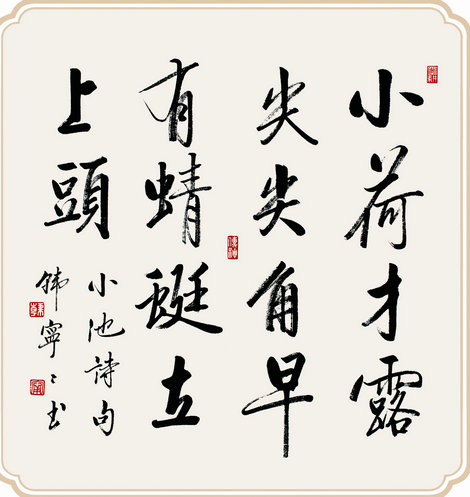 小荷才露
尖尖角早
有蜻蜓立
上頭
小池詩句
韩寧〻书